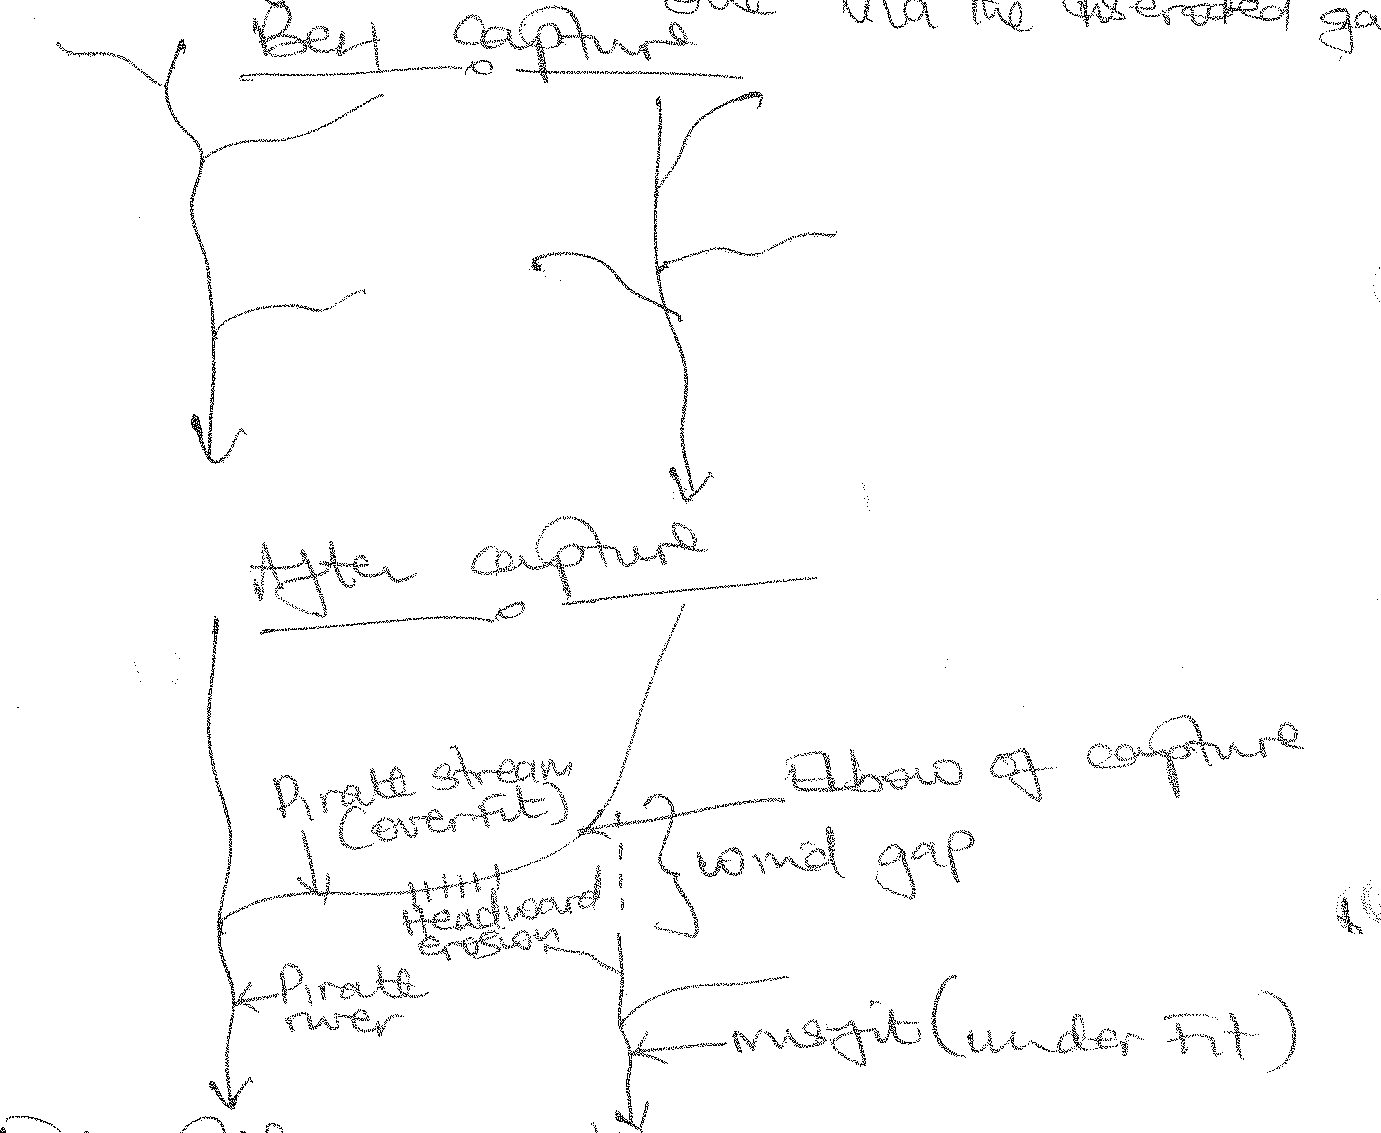 via the
Bef capture
After capture
Pirate stream
(overFit)
Elbow of capture
wind gap
Headward
erosion
Pirate
river
misfit (under Fit)